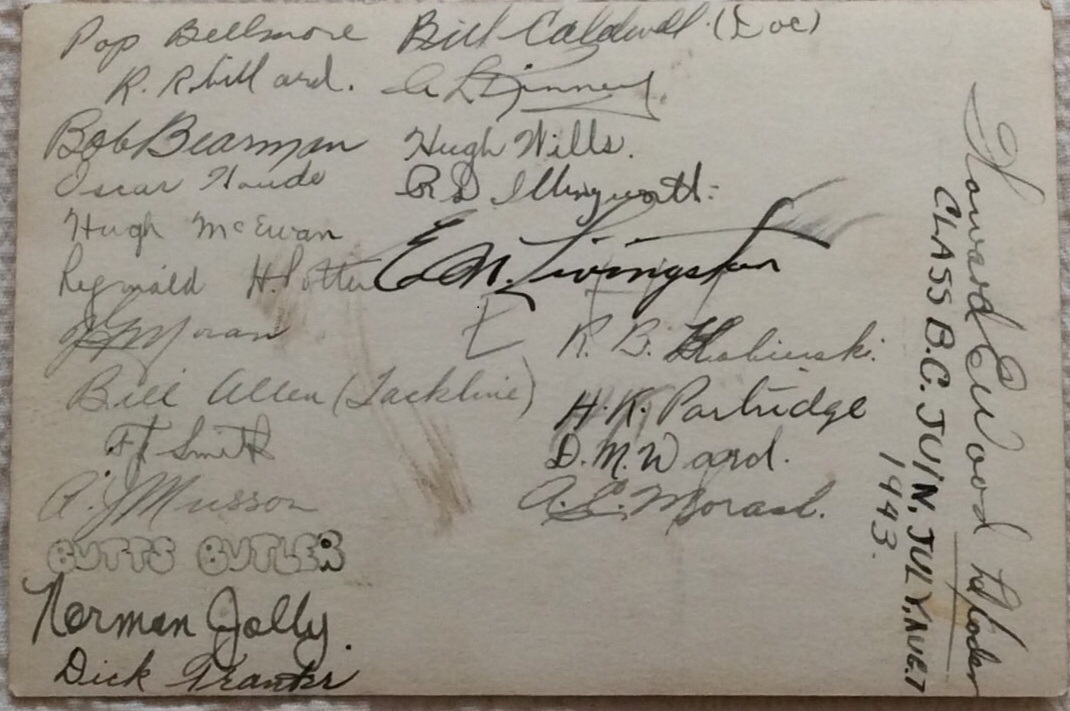 Pop Bellmore
R. Robillard.
Bob Bearman
Oscar Houde
Hugh McEwan
Reginald H. Potter
J. G. Moran
Bill Allen (Tackline)
F. J. Smith
A. J. Musson
BUTTS BUTLER
Norman Jolly.
Dick
Bill Caldwell (Doc)
A L Kinney.
Hugh Wills.
R D Illingworth.
E. M. Livingston
R. B.
H. K. Partridge
D. M. Ward.
A. E. Morash.
Howard E. Wood
CLASS B.C. JUIN, JULY, AUG. 7
1943.